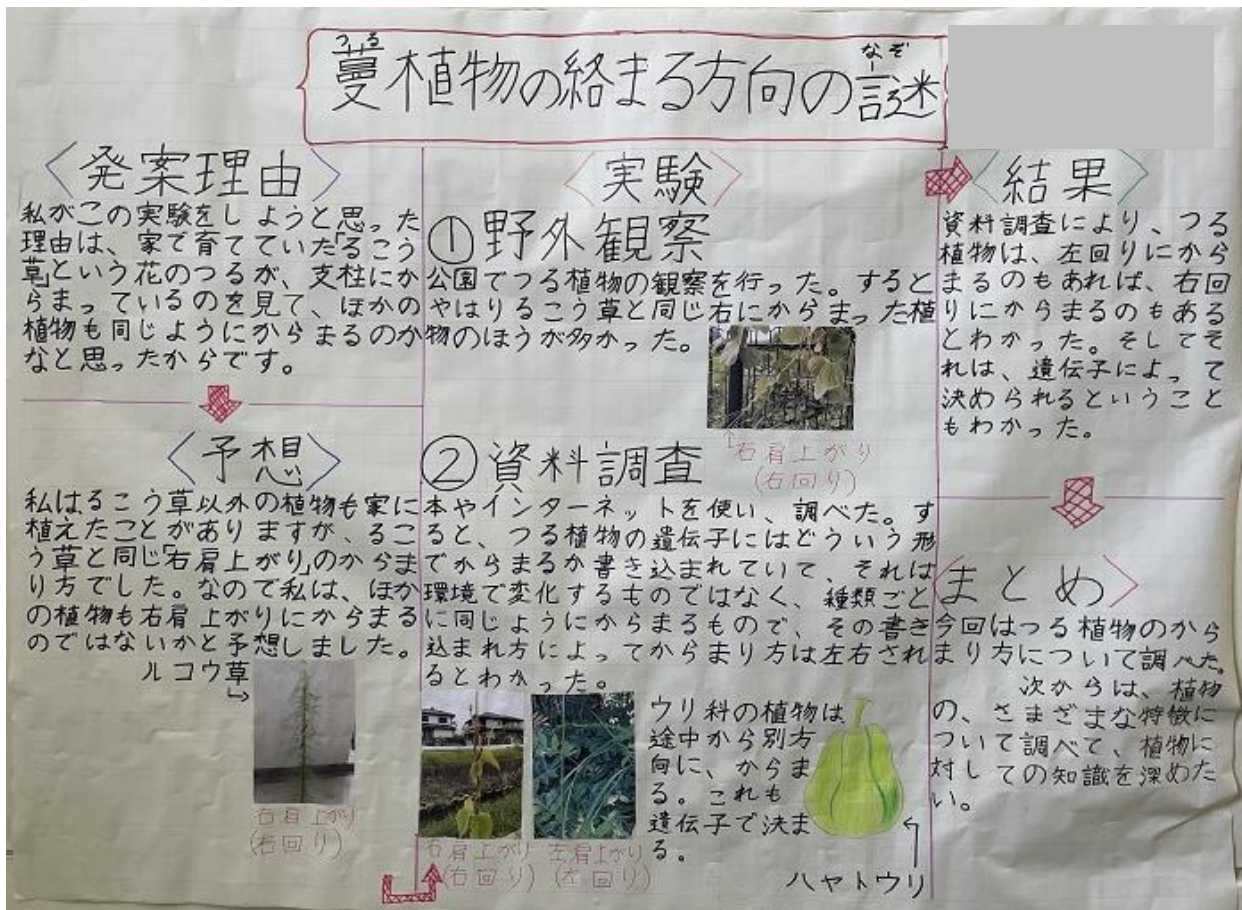 つる
なぞ
蔓植物の絡まる方向の謎
〈発案理由〉
私がこの実験をしようと思った
理由は、家で育てていた「るこう
草」という花のつるが、支柱にか
らまっているのを見て、ほかの
植物も同じようにからまるのか
なと思ったからです。
〈予想〉
私はるこう草以外の植物も家に
植えたことがありますが、るこ
う草と同じ「右肩上がり」のからま
り方でした。なので私は、ほか
の植物も右肩上がりにからまる
のではないかと予想しました。
ルコウ草
右肩上がり
(右回り)
〈実験〉
①野外観察
公園でつる植物の観察を行った。すると
やはりるこう草と同じ右にからまった植
物のほうが多かった。
右肩上がり
(右回り)
②資料調査
本やインターネットを使い、調べた。す
ると、つる植物の遺伝子にはどういう形
でからまるか書き込まれていて、それは
環境で変化するものではなく、種類ごと
に同じようにからまるもので、その書き
込まれ方によってからまり方は左右され
るとわかった。
右肩上がり
(右回り)
左肩上がり
(左回り)
ウリ科の植物は
途中から別方
向に、からま
る。これも
遺伝子で決ま
る。
ハヤトウリ
〈結果〉
資料調査により、つる
植物は、左回りにから
まるのもあれば、右回
りにからまるのもある
とわかった。そしてそ
れは、遺伝子によって
決められるということ
もわかった。
〈まとめ〉
今回はつる植物のから
まり方について調べた。
次からは、植物
の、さまざまな特徴に
ついて調べて、植物に
対しての知識を深めた
い。